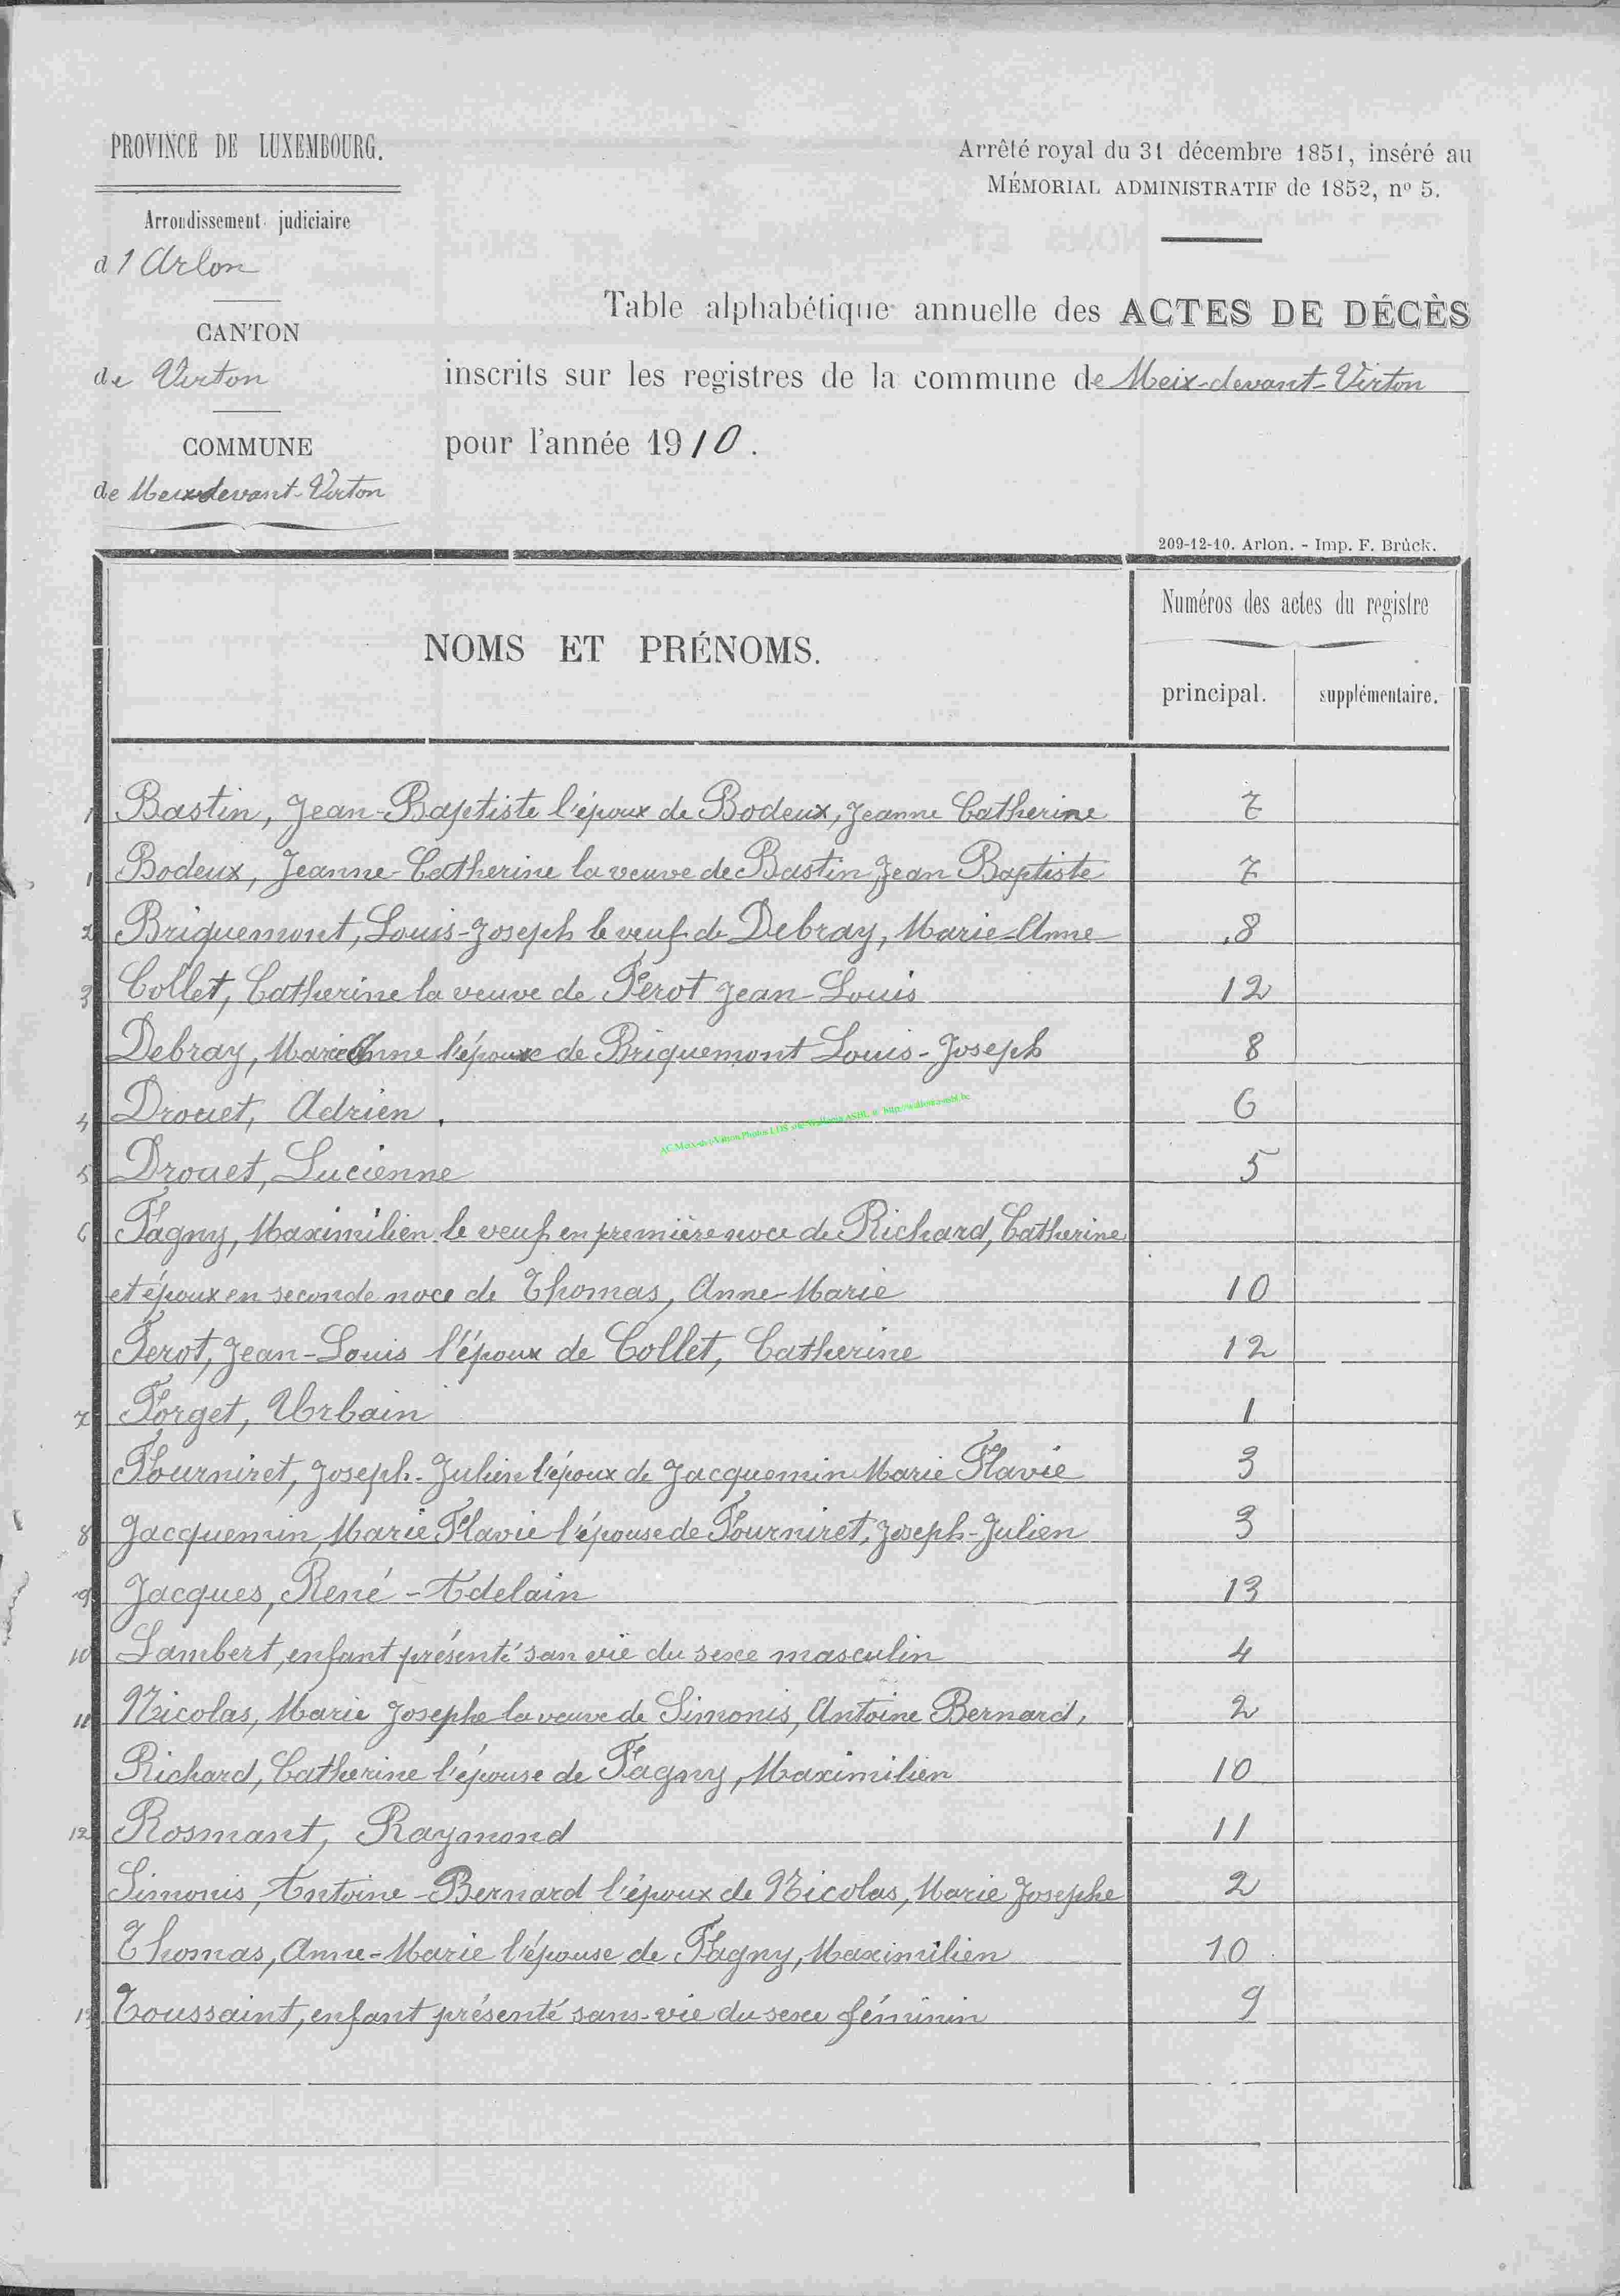 PROVINCE DE LUXEMBOURG.
Arrondissement judiciaire
d'Arlon
CANTON
de Virton
COMMUNE
de Meix devant-Virton
Arrêté royal du 31 décembre 1851, inséré au
MÉMORIAL ADMINISTRATIF de 1852, nº 5.
Table alphabétique annuelle des ACTES DE DÉCÈS
inscrits sur les registres de la commune de Meix-devant-Virton
pour l'année 1910.
209-12-10. Arlon. - Imp. F. Brück.
NOMS ET PRÉNOMS.
Numéros des actes du registre
principal. supplémentaire.
1 Bastin, Jean-Baptiste l'époux de Bodeux, Jeanne Catherine 7
1 Bodeux, Jeanne-Catherine la veuve de Bastin Jean Baptiste 7
2 Briquemont, Louis-Joseph le veuf de Debray, Marie-Anne 8
3 Collet, Catherine la veuve de Ferot Jean-Louis 12
Debray, Marie Anne l'épouse de Briquemont Louis-Joseph 8
4 Drouet, Adrien. 6
5 Drouet, Lucienne 5
6 Fagny, Maximilien le veuf en première noce de Richard, Catherine
et époux en seconde noce de Thomas, Anne-Marie 10
Ferot, Jean-Louis l'époux de Collet, Catherine 12
7 Forget, Urbain 1
Fourniret, Joseph-Julien l'époux de Jacquemin Marie Flavie 3
8 Jacquemin, Marie Flavie l'épouse de Fourniret, Joseph-Julien 3
9 Jacques, René-Adelain 13
10 Lambert, enfant présenté san vie du sexe masculin 4
11 Nicolas, Marie Josephe la veuve de Simonis, Antoine Bernard, 2
Richard, Catherine l'épouse de Fagny, Maximilien 10
12 Rosmant, Raymond 11
Simonis, Antoine-Bernard l'époux de Nicolas, Marie Josephe 2
Thomas, Anne-Marie l'épouse de Fagny, Maximilien 10
13 Toussaint, enfant présenté sans-vie du sexe féminin 9